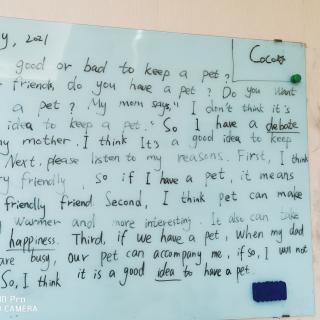 y, 2021
Coco
good or bad to keep a pet?
friends, do you have a pet? Do you want
a pet? My mom says, "I don't think it's
idea to keep a pet." So I have a debate
my mother. I think It's a good idea to keep
Next, please listen to my reasons. First, I think
ry friendly, so if I have a pet, it means
friendly friend. Second, I think pet can make
warmer and more interesting. It also can take
happiness. Third, if we have a pet, when my dad
are busy, our pet can accompany me, if so, I will not
So, I think it is a good idea to have a pet.
0 Pro
D CAMERA